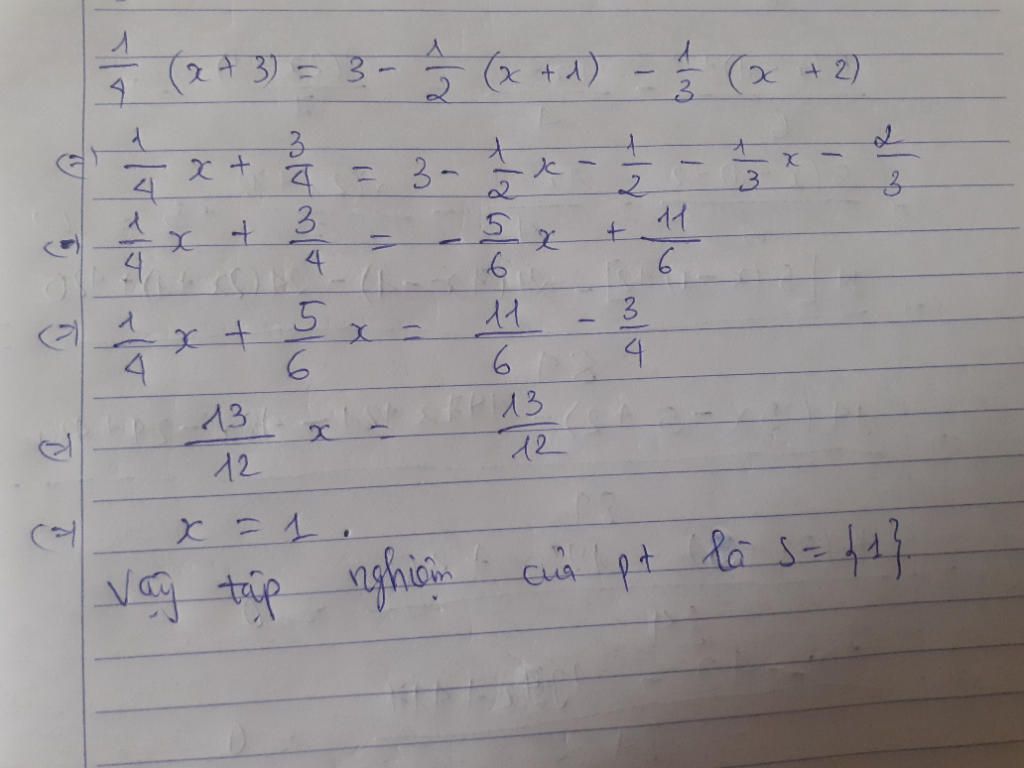 1/4 (x + 3) = 3 - 1/2 (x + 1) - 1/3 (x + 2)
(=) 1/4 x + 3/4 = 3 - 1/2 x - 1/2 - 1/3 x - 2/3
(=) 1/4 x + 3/4 = - 5/6 x + 11/6
(=) 1/4 x + 5/6 x = 11/6 - 3/4
(=) 13/12 x = 13/12
(=) x = 1.
Vậy tập nghiệm của pt là S = {1}.